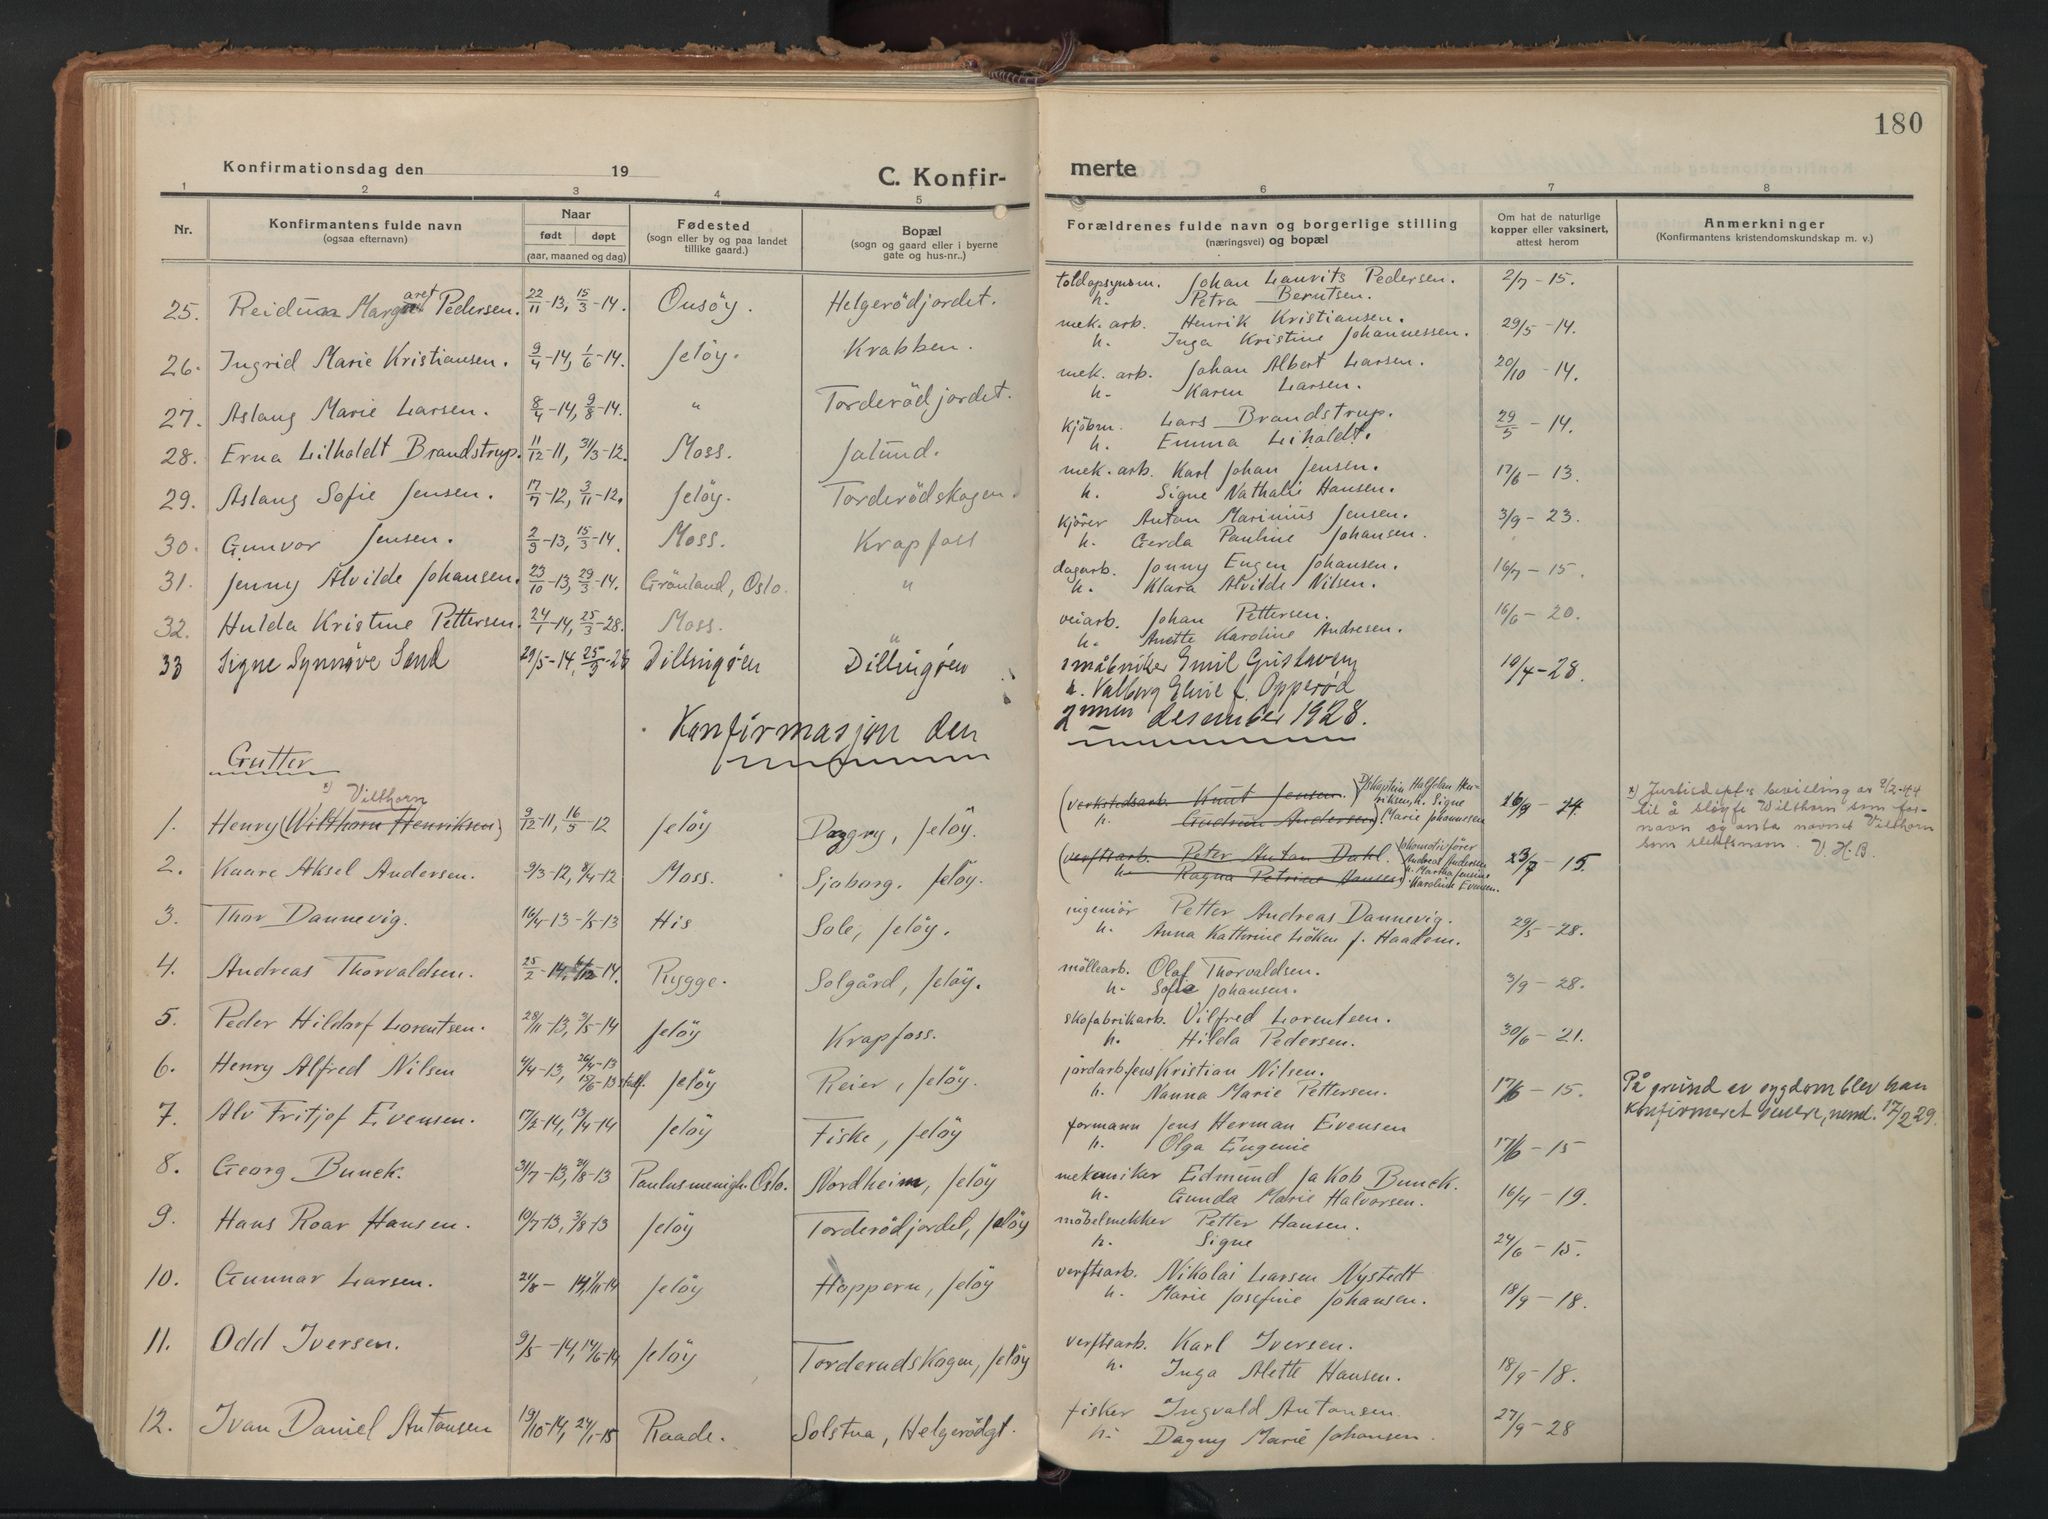 180
Konfirmationsdag den 19
C. Konfir-
merte
1 2 3 4 5 6 7 8
Nr.
Konfirmantens fulde navn
(ogsaa efternavn)
Naar
født døpt
(aar, maaned og dag)
Fødested
(sogn eller by og paa landet
tillike gaard.)
Bopæl
(sogn og gaard eller i byerne
gate og hus-nr..)
Forældrenes fulde navn og borgerlige stilling
(næringsvei) og bopæl
Om hat de naturlige
kopper eller vaksinert,
attest herom
Anmerkninger
(Konfirmantens kristendomskundskap m. v.)
25. Reidun Margaret Pedersen. 22/11-13, 15/3-14. Onsöy. Helgerödjordet. toldopsynsm. Johan Lauvits Pedersen. 2/7-15.
h. Petra Berntsen.
26. Ingrid Marie Kristiansen. 9/4-14, 1/6-14. Jelöy. Krabben. mek. arb. Henrik Kristiansen. 29/5-14.
h. Inga Kristine Johannessen.
27. Aslaug Marie Larsen. 8/4-14, 9/8-14. " Torderödjordet. mek. arb. Johan Albert Larsen. 20/10-14.
h. Karen Larsen.
28. Erna Lilholdt Brandstrup. 11/12-11, 31/3-12. Moss. Jalund. kjöbm. Lars Brandstrup. 29/5-14.
h. Emma Liholdt.
29. Aslaug Sofie Jensen. 17/7-12, 3/11-12. Jelöy. Torderödskogen. mek. arb. Karl Johan Jensen. 17/6-13.
h. Signe Nathalie Hansen.
30. Gunvor Jensen. 2/9-13, 15/3-14. Moss. Krapfoss kjörer Anton Marinius Jensen. 3/9-23.
h. Gerda Pauline Johansen.
31. Jenny Alvilde Johansen. 23/10-13, 29/3-14. Grönland, Oslo. " dagarb. Jonny Eugen Johansen. 16/7-15.
h. Klara Alvilde Nilsen.
32. Hulda Kristine Pettersen. 24/1-14, 25/3-28. Moss. " veiarb. Johan Pettersen. 16/6-20.
h. Anette Karoline Andresen.
33 Signe Synnöve Sand 29/5-14, 25/3-28 Dillingøen Dillingøen småbruker Emil Gustavsen 10/4-28.
h. Valborg Eline f. Opperød
Konfirmasjon den 2nnen desember 1928.
Gutter
x) Vilthorn
1. Henry (Wilthorn Henriksen) 9/12-11, 16/5-12 Jelöy Daggry, Jelöy. (verkstedsarb. Knut Jensen. Halfdan Hen- 26/9-24.
h. Gudrun Andersen) riksen, h. Signe Marie Johannesen
x) Justisdep.s bevilling av 9/2-44
til å sløyfe Wilthorn som for-
navn og anta navnet Vilthorn
som slektsnavn. V. H. B.
2. Kaare Aksel Andersen. 9/3-12, 8/4-12 Moss. Sjoborg. Jelöy. (verftsarb. Peter Anton Dahl. lokomotivfører Andreas Andersen 23/7-15.
h. Ragna Petrine Hansen) h. Martha Jensine Karoline Evensen.
3. Thor Dannevig. 16/4-13 1/5-13 His Sole, Jelöy. ingeniör Petter Andreas Dannevig. 29/5-28.
h. Anna Kathrine Löken f. Haadem.
4. Andreas Thorvaldsen. 25/2-14, 6/12-14. Rygge. Solgård, Jelöy. möllearb. Olaf Thorvaldsen. 3/9-28.
h. Sofie Johansen.
5. Peder Hildorf Lorentsen. 28/11-13, 3/5-14 Jelöy Krapfoss. skofabrikarb. Vilfred Lorentsen. 30/6-21.
h. Hilda Pedersen.
6. Henry Alfred Nilsen 4/4-13, 26/4-13 Jelöy Reier, Jelöy. jordarb. Jens Kristian Nilsen. 17/6-15.
15/6-13 stadf. h. Nanna Marie Pettersen.
På grunn av sygdom blev han
konfirmeret senere, neml. 17/2 29.
7. Alv Fritjof Evensen. 17/2-14, 13/4-14 Jelöy Fiske, Jelöy formann Jens Herman Evensen 17/6-15
h. Olga Eugenie
8. Georg Bunck. 31/7-13, 24/8-13 Paulusmenigh. Oslo. Nordheim, Jelöy mekaniker Edmund Jakob Bunck. 16/4-19.
h. Gunda Marie Halvorsen.
9. Hans Roar Hansen. 10/7-13, 3/8-13 Jelöy Torderödjordet, Jelöy möbelsnekker Petter Hansen. 24/6-15.
h. Signe
10. Gunnar Larsen. 21/8-14, 1/11-14 Jelöy Hoppern, Jelöy verftsarb. Nikolai Larsen Nystedt 18/9-18.
h. Marie Josefine Johansen.
11. Odd Iversen. 9/5-14, 14/6-14 Jelöy Torderudskogen, Jelöy verftsarb. Karl Iversen. 18/9-18.
h. Inga Alette Hansen.
12. Ivan Daniel Antonsen 19/10-14, 24/1-15 Raade. Solstua, Helgerödgt. fisker Ingvald Antonsen 27/9-28
h. Dagny Marie Johansen.